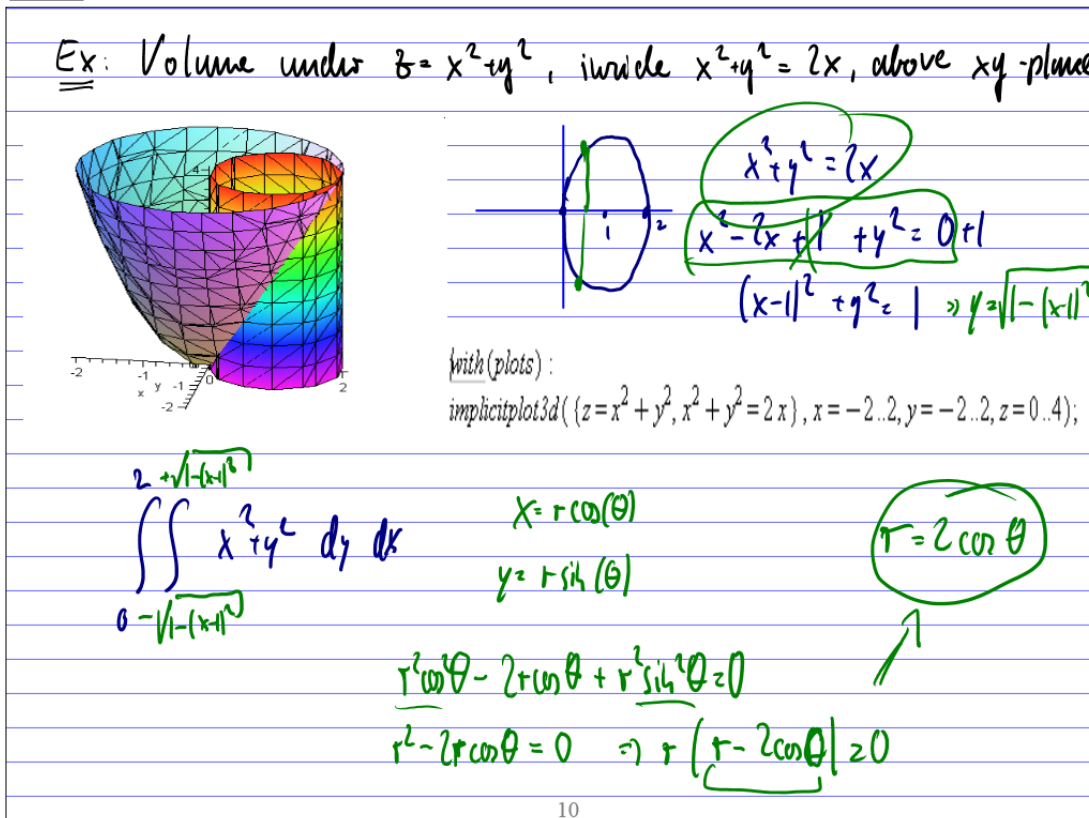 Ex: Volume under z = x² + y², inside x² + y² = 2x, above xy-plane
4
-2 -1 0 2
x y -1
-2
1 2
x² + y² = 2x
x² - 2x + 1 + y² = 0 + 1
(x-1)² + y² = 1 ⇒ y = √(1-(x-1)²)
with(plots) :
implicitplot3d({z=x²+y², x²+y²=2x}, x=-2..2, y=-2..2, z=0..4);
∫₀² ∫_{-√(1-(x-1)²)}^{+√(1-(x-1)²)} x² + y² dy dx
x = r cos(θ)
y = r sin(θ)
r = 2 cos θ
r² cos² θ - 2r cos θ + r² sin² θ = 0
r² - 2r cos θ = 0 ⇒ r(r - 2cos θ) = 0
10